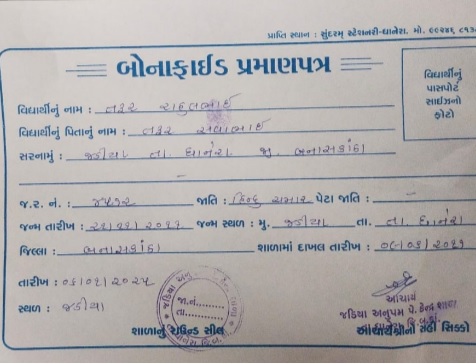 પ્રાપ્તિ સ્થાન : સુંદરમ્ સ્ટેશનરી-ધાનેરા. મો.
બોનાફાઈડ પ્રમાણપત્ર
વિદ્યાર્થીનું પાસપોર્ટ સાઈઝનો ફોટો
વિદ્યાર્થીનું નામ : તકર રાહુલભાઈ
વિદ્યાર્થીનું પિતાનું નામ : તકર સવાભાઈ
સરનામું : જડીયા તા. ધાનેરા જી. બનાસકાંઠા
જ.ર. નં. : જાતિ : હિન્દુ ચમાર પેટા જાતિ : -
જન્મ તારીખ : જન્મ સ્થળ : મુ. જડીયા તા. તા. ધાનેરા
જિલ્લા : બનાસકાંઠા શાળામાં દાખલ તારીખ :
તારીખ : ૦૬/૦૧/૨૦૨૫
સ્થળ : જડીયા
જા.નં.........
તા.........
શાળાનું રાઉન્ડ સીલ
આચાર્ય
જડિયા અનુપમ પે. કેન્દ્ર શાળા
આચાર્યશ્રીની સહી સિક્કો